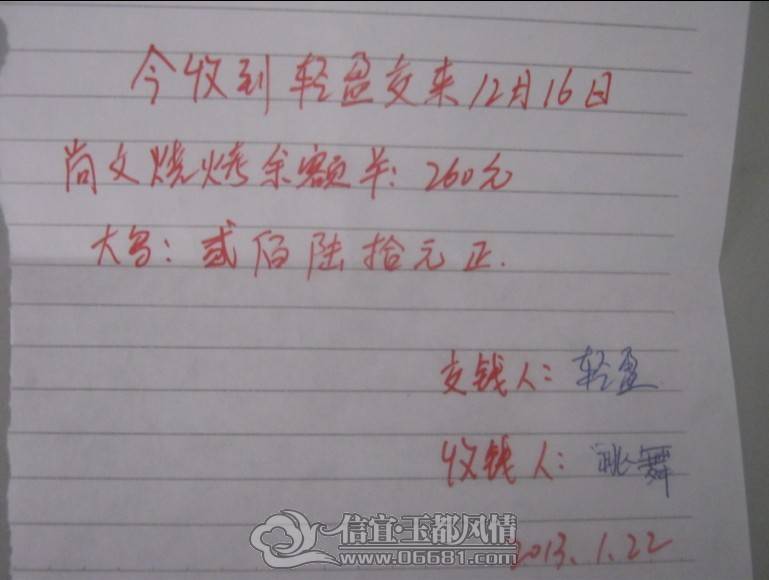 今收到轻盈交来12月16日
尚文烧烤余额羊：260元
大写：贰佰陆拾元正.
交钱人：轻盈
收钱人：跳舞
2013.1.22
信宜·玉都风情
www.06681.com